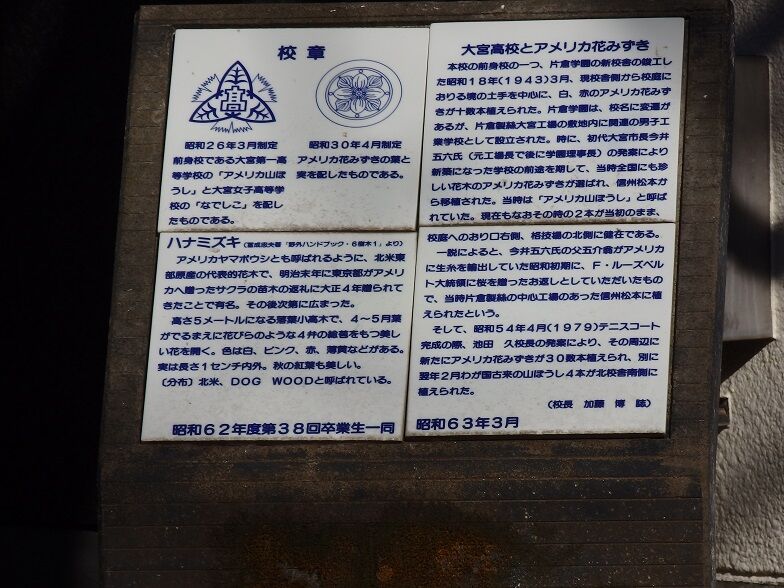 校章
高
昭和26年3月制定
前身校である大宮第一高
等学校の「アメリカ山ぼ
うし」と大宮女子高等学
校の「なでしこ」を配し
たものである。
昭和30年4月制定
アメリカ花みずきの葉と
実を配したものである。
ハナミズキ(富成忠夫著「野外ハンドブック・6樹木1」より)
アメリカヤマボウシとも呼ばれるように、北米東
部原産の代表的花木で、明治末年に東京都がアメリ
カへ贈ったサクラの苗木の返礼に大正4年贈られて
きたことで有名。その後次第に広まった。
高さ5メートルになる落葉小高木で、4〜5月葉
がでるまえに花びらのような4弁の総苞をもつ美し
い花を開く。色は白、ピンク、赤、薄黄などがある。
実は長さ1センチ内外。秋の紅葉も美しい。
〔分布〕北米、DOG WOODと呼ばれている。
昭和62年度第38回卒業生一同
大宮高校とアメリカ花みずき
本校の前身校の一つ、片倉学園の新校舎の竣工し
た昭和18年(1943)3月、現校舎側から校庭に
おりる境の土手を中心に、白、赤のアメリカ花みず
きが十数本植えられた。片倉学園は、校名に変遷が
あるが、片倉製絲大宮工場の敷地内に関連の男子工
業学校として設立された。時に、初代大宮市長今井
五六氏(元工場長で後に学園理事長)の発案により
新築になった学校の前途を期して、当時全国にも珍
しい花木のアメリカ花みずきが選ばれ、信州松本か
ら移植された。当時は「アメリカ山ぼうし」と呼ば
れていた。現在もなおその時の2本が当初のまま、
校庭へのおり口右側、格技場の北側に健在である。
一説によると、今井五六氏の父五介翁がアメリカ
に生糸を輸出していた昭和初期に、F・ルーズベル
ト大統領に桜を贈ったお返しとしていただいたもの
で、当時片倉製絲の中心工場のあった信州松本に植
えられたという。
そして、昭和54年4月(1979)テニスコート
完成の際、池田 久校長の発案により、その周辺に
新たにアメリカ花みずきが30数本植えられ、別に
翌年2月わが国古来の山ぼうし4本が北校舎南側に
植えられた。
(校長 加藤 博 誌)
昭和63年3月